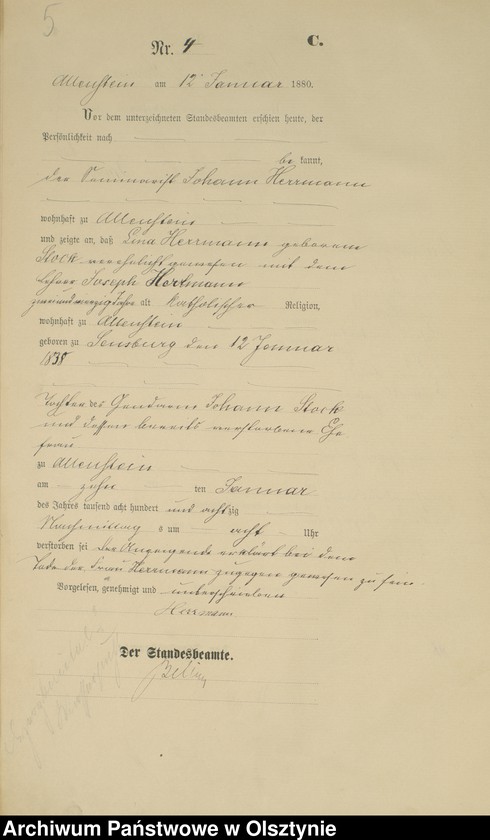 5
Nr. 4
C.
Allenstein am 12 Januar 1880.
Vor dem unterzeichneten Standesbeamten erschien heute, der
Persönlichkeit nach
be kannt,
der Seminarist Johann Herrmann
wohnhaft zu Allenstein
und zeigte an, daß Lina Herrmann geborene
Stock verehelicht gewesen mit dem
Lehrer Joseph Herrmann
alt katholischer Religion,
wohnhaft zu Allenstein
geboren zu Sensburg den 12 Januar
1838
Tochter des Gendarm Johann Stock
und dessen bereits verstorbene Ehe
frau
zu Allenstein
am zehn ten Januar
des Jahres tausend acht hundert und achtzig
Nachmittag s um acht Uhr
verstorben sei der Anzeigende erklärt bei dem
Tode der Frau Herrmann zugegen gewesen zu sein.
Vorgelesen, genehmigt und unterschrieben
Herrmann
Der Standesbeamte.
Archiwum Państwowe w Olsztynie